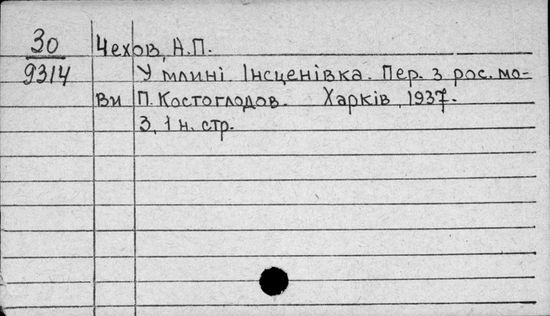 30 Чехов, А.П.
9314 У млині. Інсценівка. Пер. з рос. мо-
ви П. Костоглодов. Харків, 1937.
3, 1 н. стр.